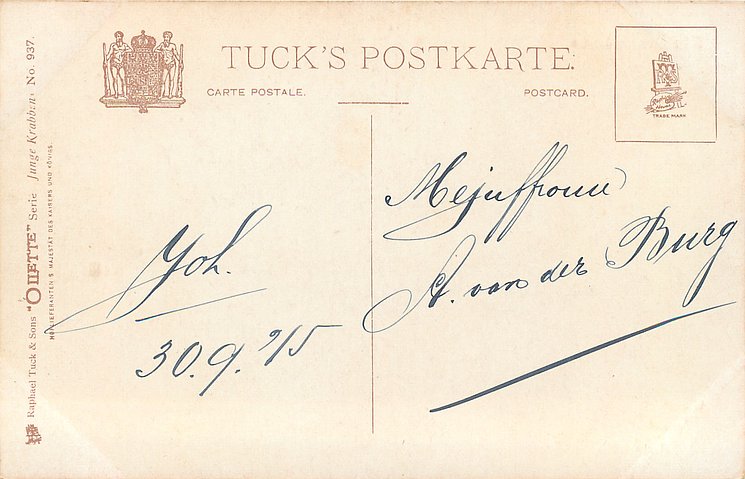 TUCK'S POSTKARTE.
CARTE POSTALE.
POSTCARD.
TRADE MARK
Mejuffrouw
A. van der Burg
Joh.
30.9.'15
Raphael Tuck & Sons "OILETTE" Serie Junge Krabben No. 937.
HOFLIEFERANTEN S. MAJESTÄT DES KAISERS UND KÖNIGS.